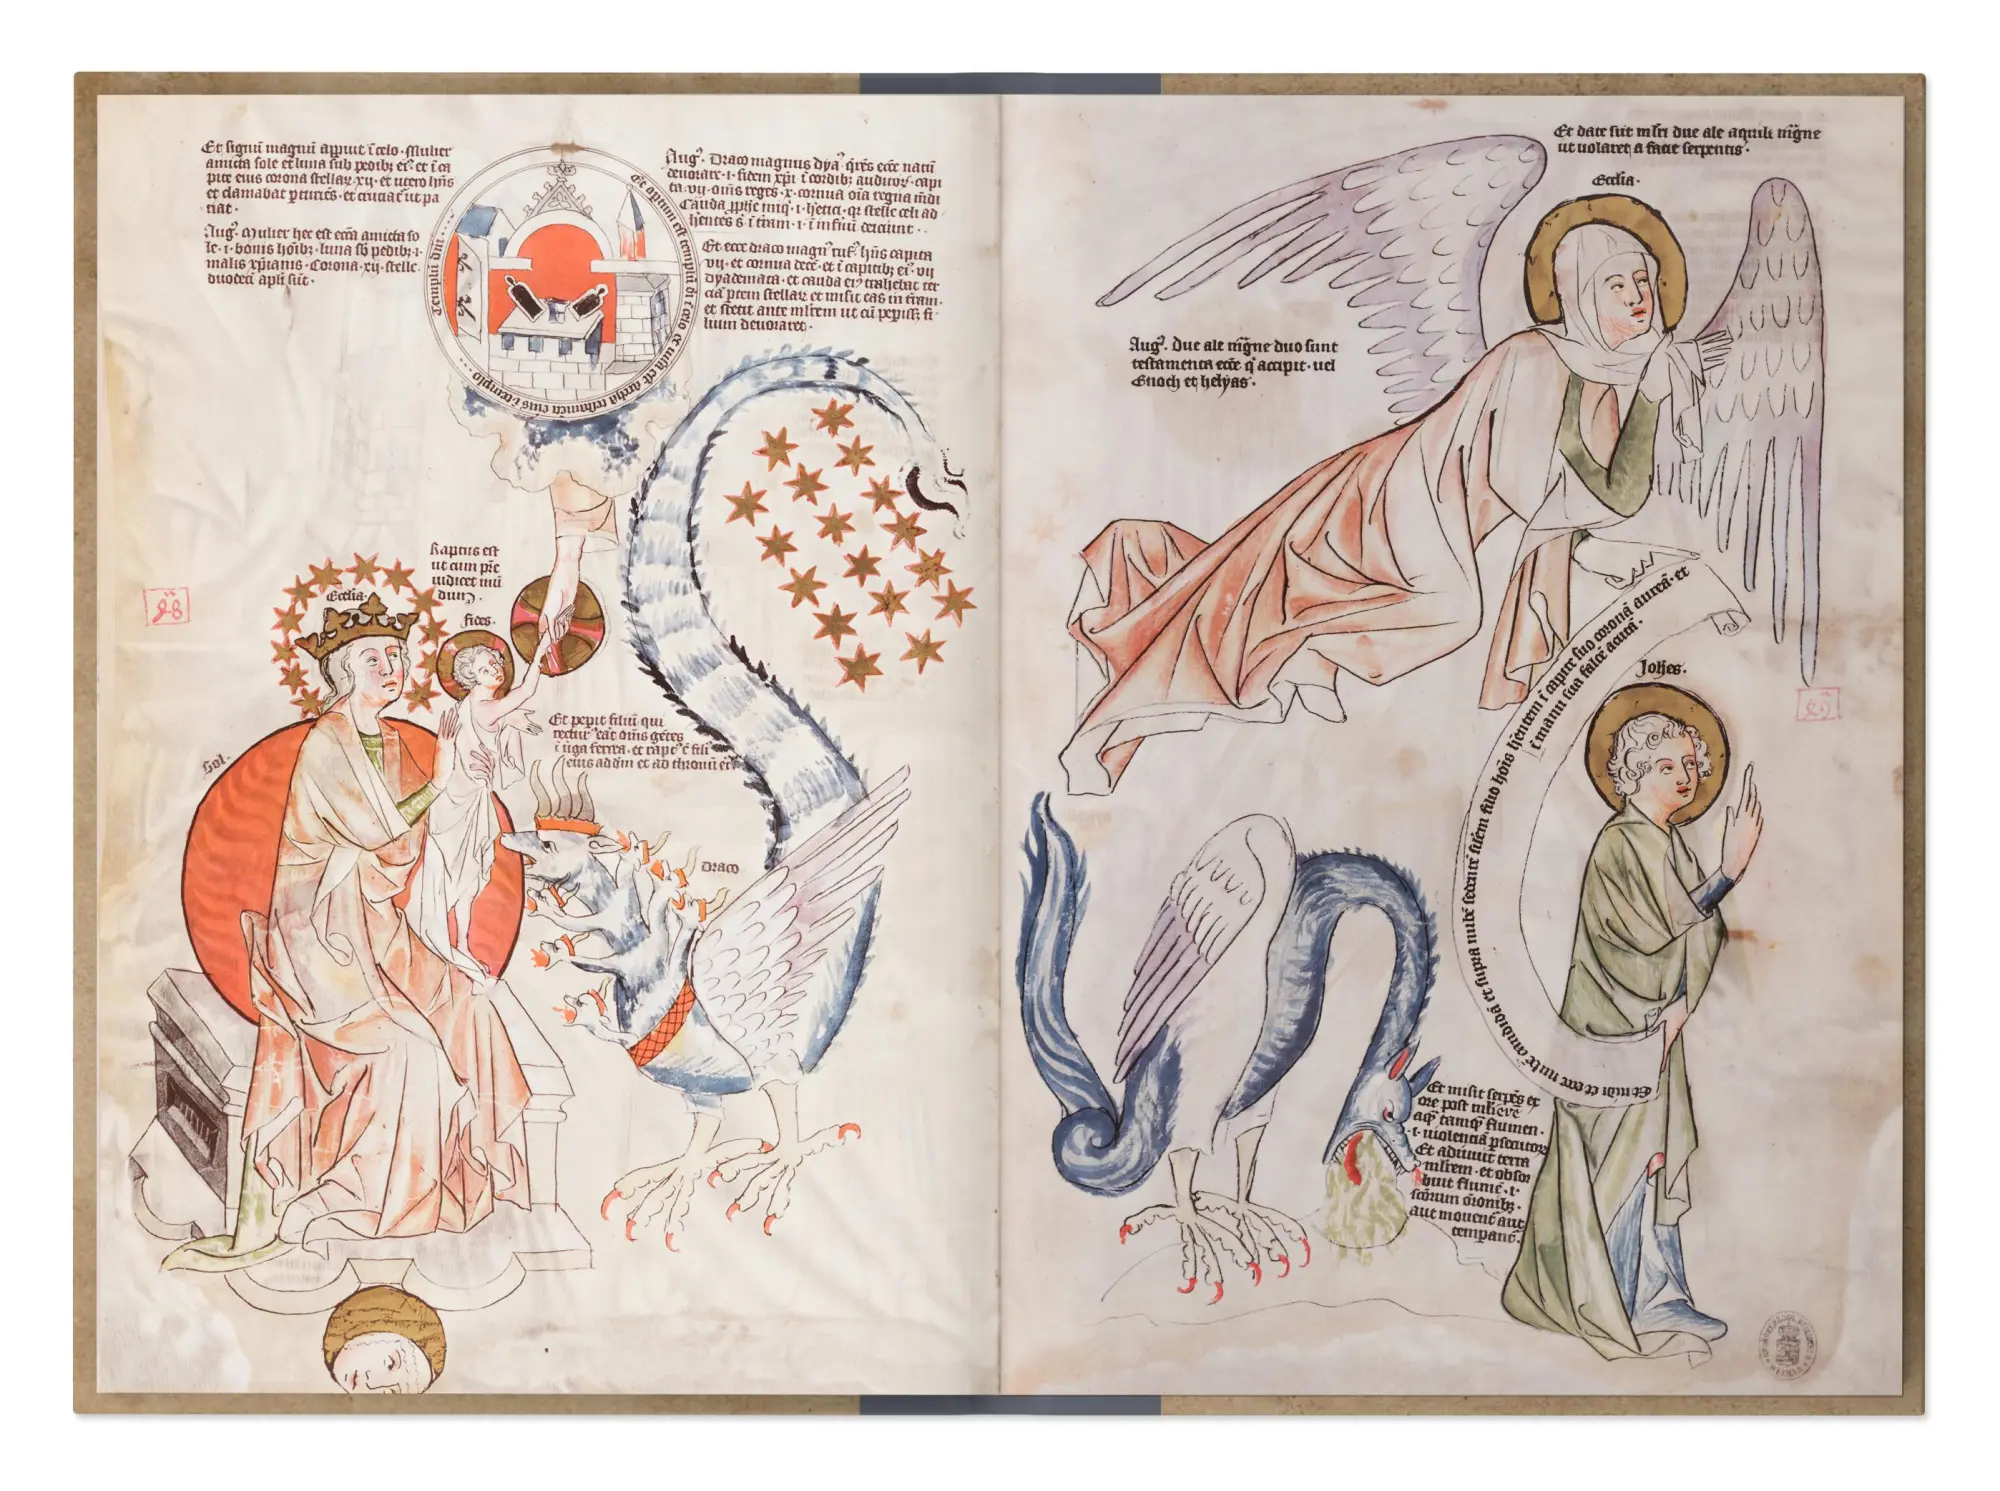 Et signū magnū apptuit ī celo. Mulier
amicta sole et luna sub pedibꝫ eiꝰ. et ī ca
pite eius corona stellaꝝ xij. et utero hn̄s
et clamabat ꝑturiēs. et cruciat᷑ ut pa
riat.
Augꝰ. Mulier hec est ecc̄a amicta so
le. i. bonis hōībꝫ. luna sb̄ pedibꝫ. i.
malis xp̄ianis. Corona. xij. stelle.
duodecī apl̄i sūt.
Templū dn̄i
Et aptum est templū di ī celo et uisa est archa testamēti eius ī templo
Augꝰ. Draco magnus dya
deuorare. i. fidem xp̄i ī cordibꝫ auditoꝝ. capi
ta. vij. om̄s reges. x. cornua oīa regna mūdi
Cauda
hentes s. ī terram. i. ī infimū deiciunt.
Et ecce draco magnꝰ rufꝰ. hn̄s capita
vij. et cornua decē. et ī capitibꝫ eiꝰ. vij
dyademata. et cauda eiꝰ trahebat ter
ciā ꝑtem stellaꝝ et misit eas in t̄ram.
et stetit ante ml̄rem ut cū peꝑissꝫ fi
lium deuoraret.
Raptus est
ut cum pr̄e
iudicet mū
dum.
Ecc̄lia.
fides.
28
Et peꝑit filiū qui
rectur᷑ erat om̄s gētes
ī uͥga ferrea. et rapt᷑ ē filiꝰ
eius ad dm̄ et ad thronū eiꝰ
Sol.
Draco
Et date sūt ml̄ri due ale aquile mg̈ne
ut uolaret a facie serpentis.
Ecc̄lia.
Augꝰ. Due ale mg̈ne duo sunt
testamenta ecc̄e q̄ accipit. uel
Enoch et helyas.
Et uidi et ecce nubē candidā et supra nubē sedentē similem filio hoīs hn̄tem ī capite suo coronā aureā. et
ī manu sua falcē acutā.
Joh̄es.
29
Et misit serpēs ex
ore post mlierē
aq̄ tamq̄ flumen.
.i. uiolentiā ꝑsecutor
Et adiuuit terra
mlīrem. et obsor
buit flumē. i.
scōrum ōronibꝫ.
aut mouent᷑ aut
temꝑant᷑.